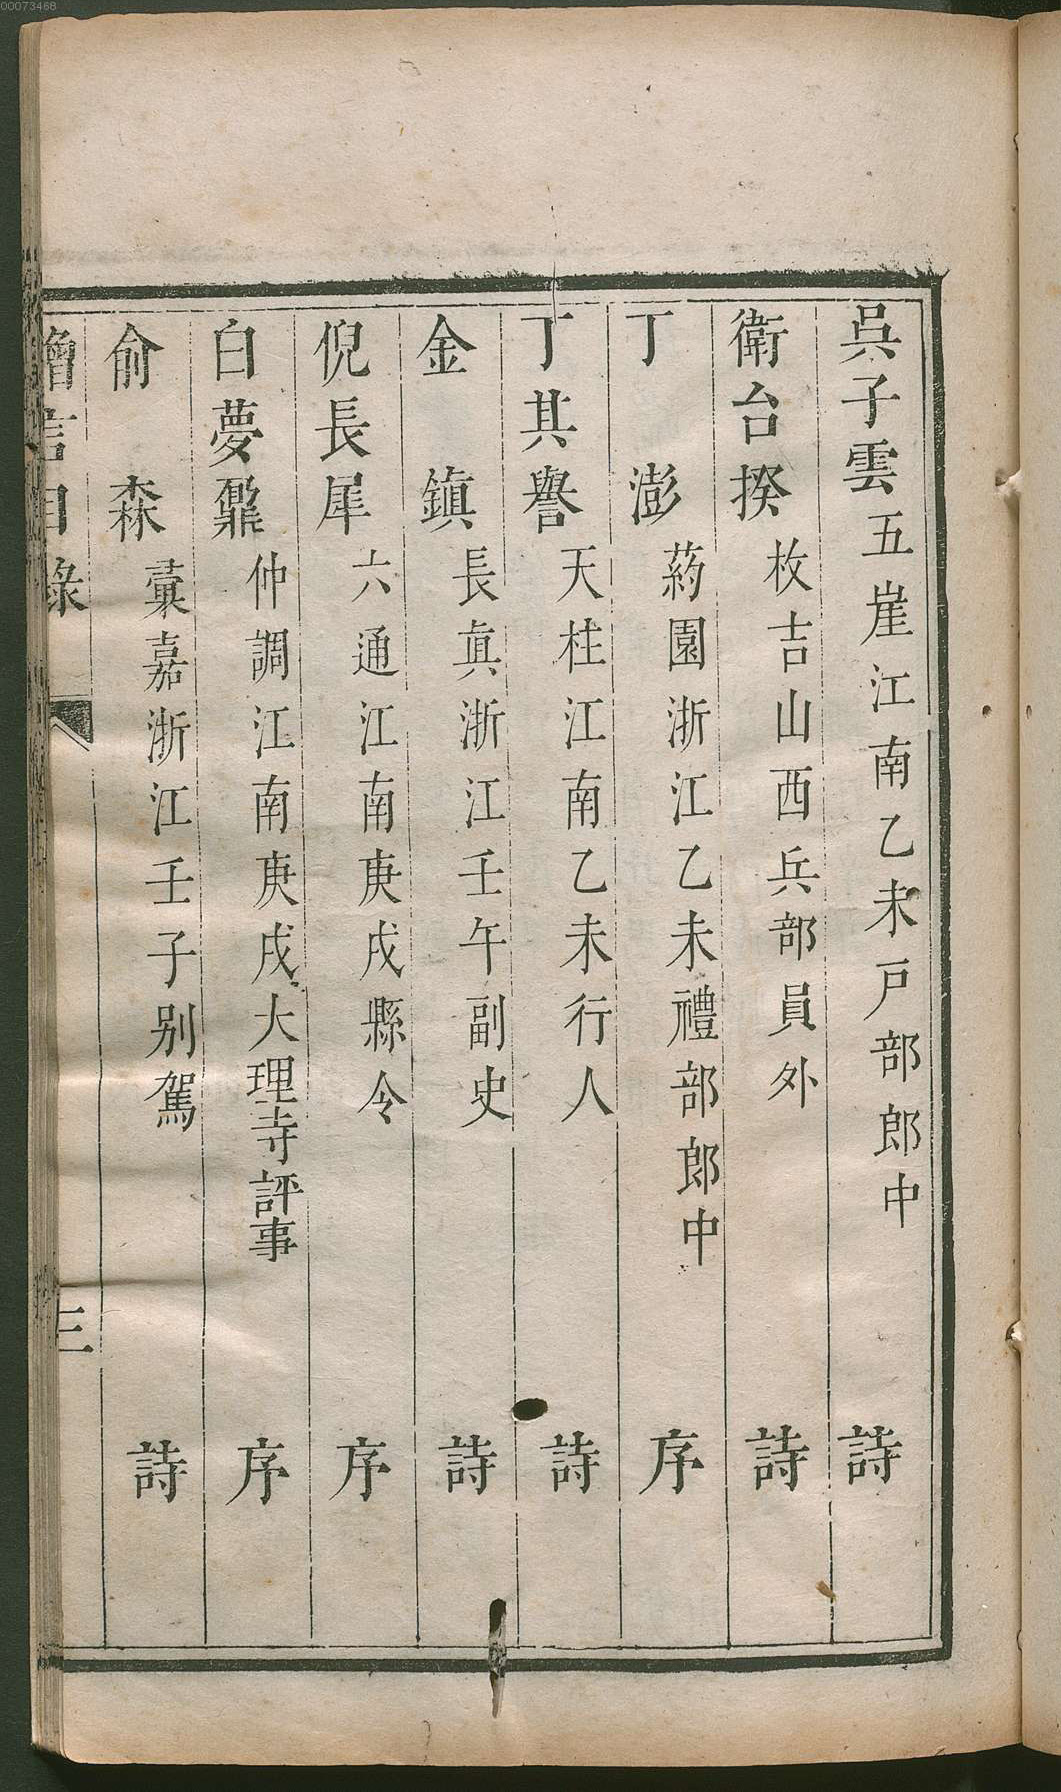 00073468
吳子雲五崖江南乙未戸部郎中詩
衛台揆枚吉山西兵部員外詩
丁澎葯園浙江乙未禮部郎中序
丁其譽天柱江南乙未行人詩
金鎮長眞浙江壬午副史詩
倪長犀六通江南庚戌縣令序
白夢鼐仲調江南庚戌大理寺評事序
俞森彚嘉浙江壬子别駕詩
目錄
三